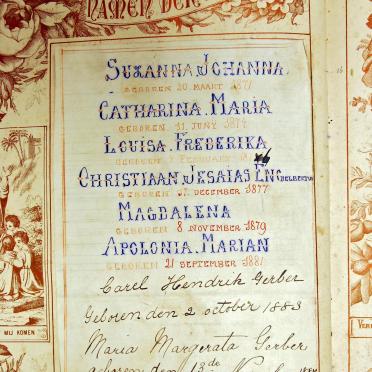 NAMEN DER
SUZANNA JOHANNA
GEBOREN 20 MAART 1871
CATHARINA. MARIA
GEBOREN 11 JUNY 1874
LOUISA. FREDERIKA
GEBOREN 7 FEBRUARY
CHRISTIAAN JESAIAS ENGELBERTUS
GEBOREN 17 DECEMBER 1877
MAGDALENA
GEBOREN 8 NOVEMBER 1879
APOLONIA. MARIAN
GEBOREN 21 SEPTEMBER 1881
Carel Hendrik Gerber
Geboren den 2 october 1883
Maria Margerata Gerber
geboren den 13de
MIJ KOMEN